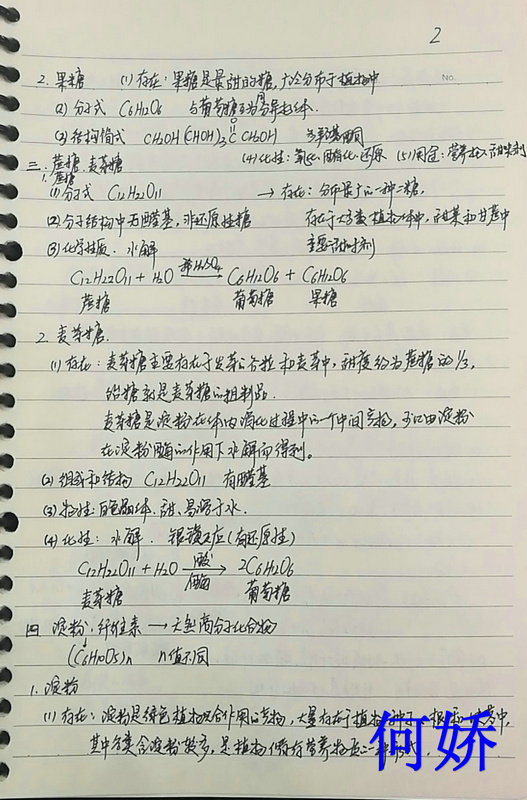 2
No.
2. 果糖 (1) 存在：果糖是最甜的糖，广泛分布于植物中
(2) 分子式 C6H12O6 与葡萄糖互为同分异构体.
(3) 结构简式 CH2OH(CHOH)3CCH2OH 多羟基酮
O
(4) 化性：氧化、酯化、还原 (5) 用途：营养物、甜味剂
三. 蔗糖. 麦芽糖
1. 蔗糖
(1) 分子式 C12H22O11 → 存在：分布最广的一种二糖，
(2) 分子结构中无醛基，非还原性糖 存在于大多数植物体中，甜菜和甘蔗中
(3) 化学性质. 水解 主要甜味剂
C12H22O11 + H2O 稀H2SO4→ C6H12O6 + C6H12O6
蔗糖 葡萄糖 果糖
2. 麦芽糖.
(1) 存在：麦芽糖主要存在于发芽的谷粒和麦芽中，甜度约为蔗糖的1/3，
饴糖就是麦芽糖的粗制品.
麦芽糖是淀粉在体内消化过程中的一个中间产物，可以由淀粉
在淀粉酶的作用下水解而得到。
(2) 组成和结构 C12H22O11 有醛基
(3) 物性：白色晶体. 甜、易溶于水.
(4) 化性：水解. 银镜反应(有还原性)
C12H22O11 + H2O 酸/酶→ 2C6H12O6
麦芽糖 葡萄糖
四 淀粉，纤维素 → 天然高分子化合物
(C6H10O5)n n值不同
1. 淀粉
(1) 存在：淀粉是绿色植物光合作用的产物，大量存在于植物的种子、根和块茎中，
其中谷类含淀粉较多，是植物储存营养物质的一种形式.
何娇